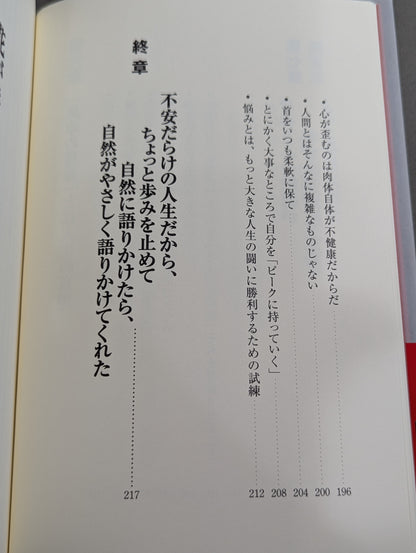 • 心が歪むのは肉体自体が不健康だからだ……196
• 人間とはそんなに複雑なものじゃない……200
• 首をいつも柔軟に保て……204
• とにかく大事なところで自分を「ピークに持っていく」……208
• 悩みとは、もっと大きな人生の闘いに勝利するための試練……212
終章
不安だらけの人生だから、
ちょっと歩みを止めて
自然に語りかけたら、
自然がやさしく語りかけてくれた……217